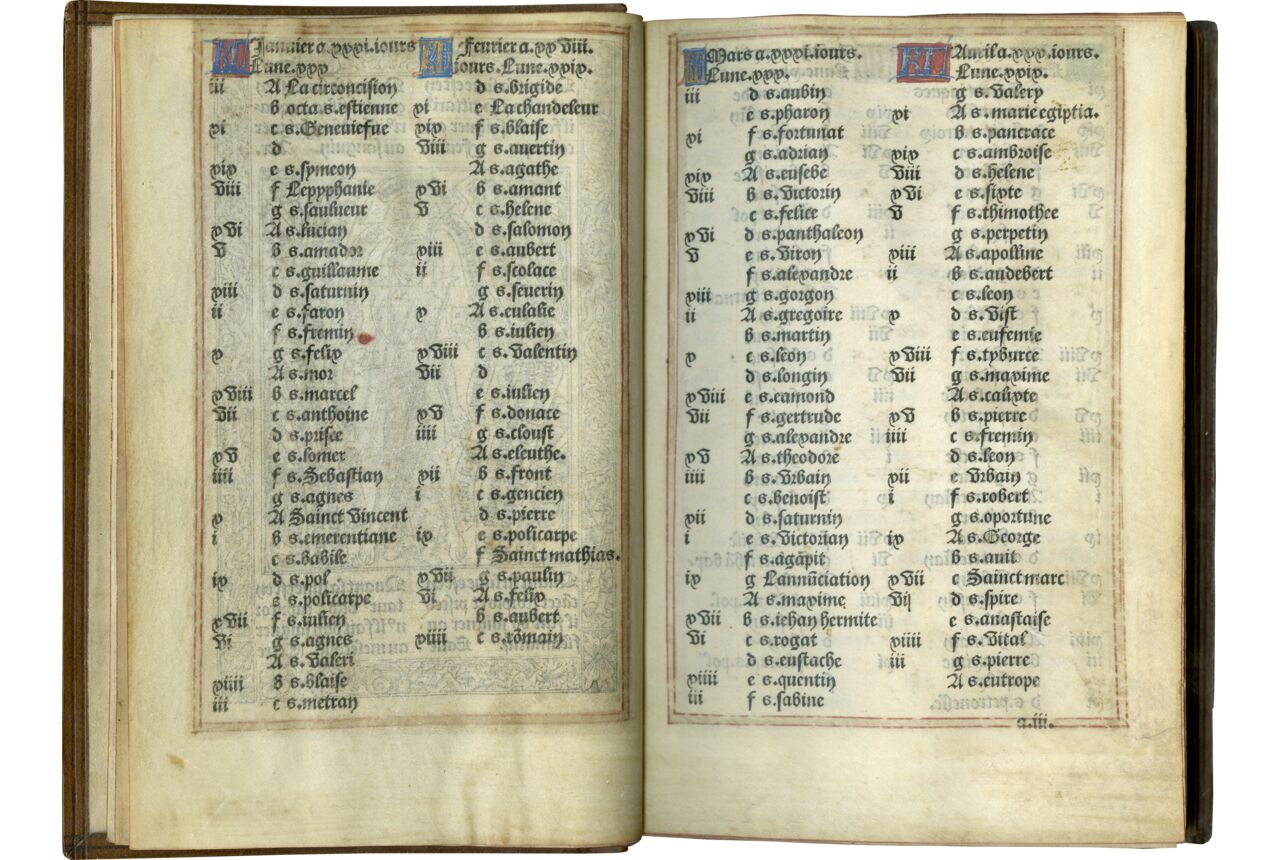 KL Januier a.xxxi.iours
Lune.xxx
iii A La circoncision
b octa s.estienne
xi c s.Geneuiefue
d
xix e s.symeon
viii f Lepyphanie
g s.saulueur
xvi A s.lucian
v b s.amador
c s.guillaume
xiii d s.saturnin
ii e s.faron
f s.fremin
x g s.felix
A s.mor
xviii b s.marcel
vii c s.anthoine
d s.prisce
xv e s.lomer
iiii f s.Sebastian
g s.agnes
x A Sainct Vincent
i b s.emerentiane
c s.babile
ix d s.pol
e s.policarpe
xvii f s.iulien
vi g s.agnes
A s.Valeri
xiiii b s.blaise
iii c s.metran
KL Feurier a.xxviii.
iours.Lune.xxix.
d s.brigide
xi e La chandeleur
xix f s.blaise
viii g s.auertin
A s.agathe
xvi b s.amant
v c s.helene
d s.salomon
xiii e s.aubert
ii f s.scolace
g s.seuerin
x A s.eulalie
b s.iulien
xviii c s.Valentin
vii d
e s.iulien
xv f s.donace
iiii g s.cloust
A s.eleuthe.
xii b s.front
i c s.gencien
d s.pierre
ix e s.policarpe
f Sainct mathias.
xvii g s.paulin
vi A s.felix
b s.aubert
xiiii c s.rōmain
Mars a.xxxi.iours.
Lune.xxx.
iii d s.aubin
e s.pharon
xi f s.fortunat
g s.adrian
xix A s.eusebe
viii b s.Victorin
c s.felice
xvi d s.panthaleon
v e s.Viron
f s.alexandre
xiii g s.gorgon
ii A s.gregoire
b s.martin
x c s.leon
d s.longin
xviii e s.eamond
vii f s.gertrude
g s.alexandre
xv A s.theodore
iiii b s.Vrbain
c s.benoist
xii d s.saturnin
i e s.Victorian
f s.agāpit
ix g Lannūciation
A s.maxime
xvii b s.iehan hermite
vi c s.rogat
d s.eustache
xiiii e s.quentin
iii f s.sabine
KL Auril a.xxx.iours.
Lune.xxix.
g s.Valery
xi A s.marie egiptia.
b s.pancrace
xix c s.ambroise
viii d s.helene
xvi e s.sixte
v f s.thimothee
g s.perpetin
xiii A s.apolline
ii b s.audebert
c s.leon
x d s.Vist
e s.eufemie
xviii f s.tyburce
vii g s.maxime
A s.calixte
xv b s.pierre
iiii c s.fremin
d s.leon
xii e Vrbain
i f s.robert
g s.oportune
ix A s.George
b s.anit
xvii c Sainct marc
vi d s.spire
e s.anastaise
xiiii f s.Vital
iii g s.pierre
A s.eutrope
a.iii.